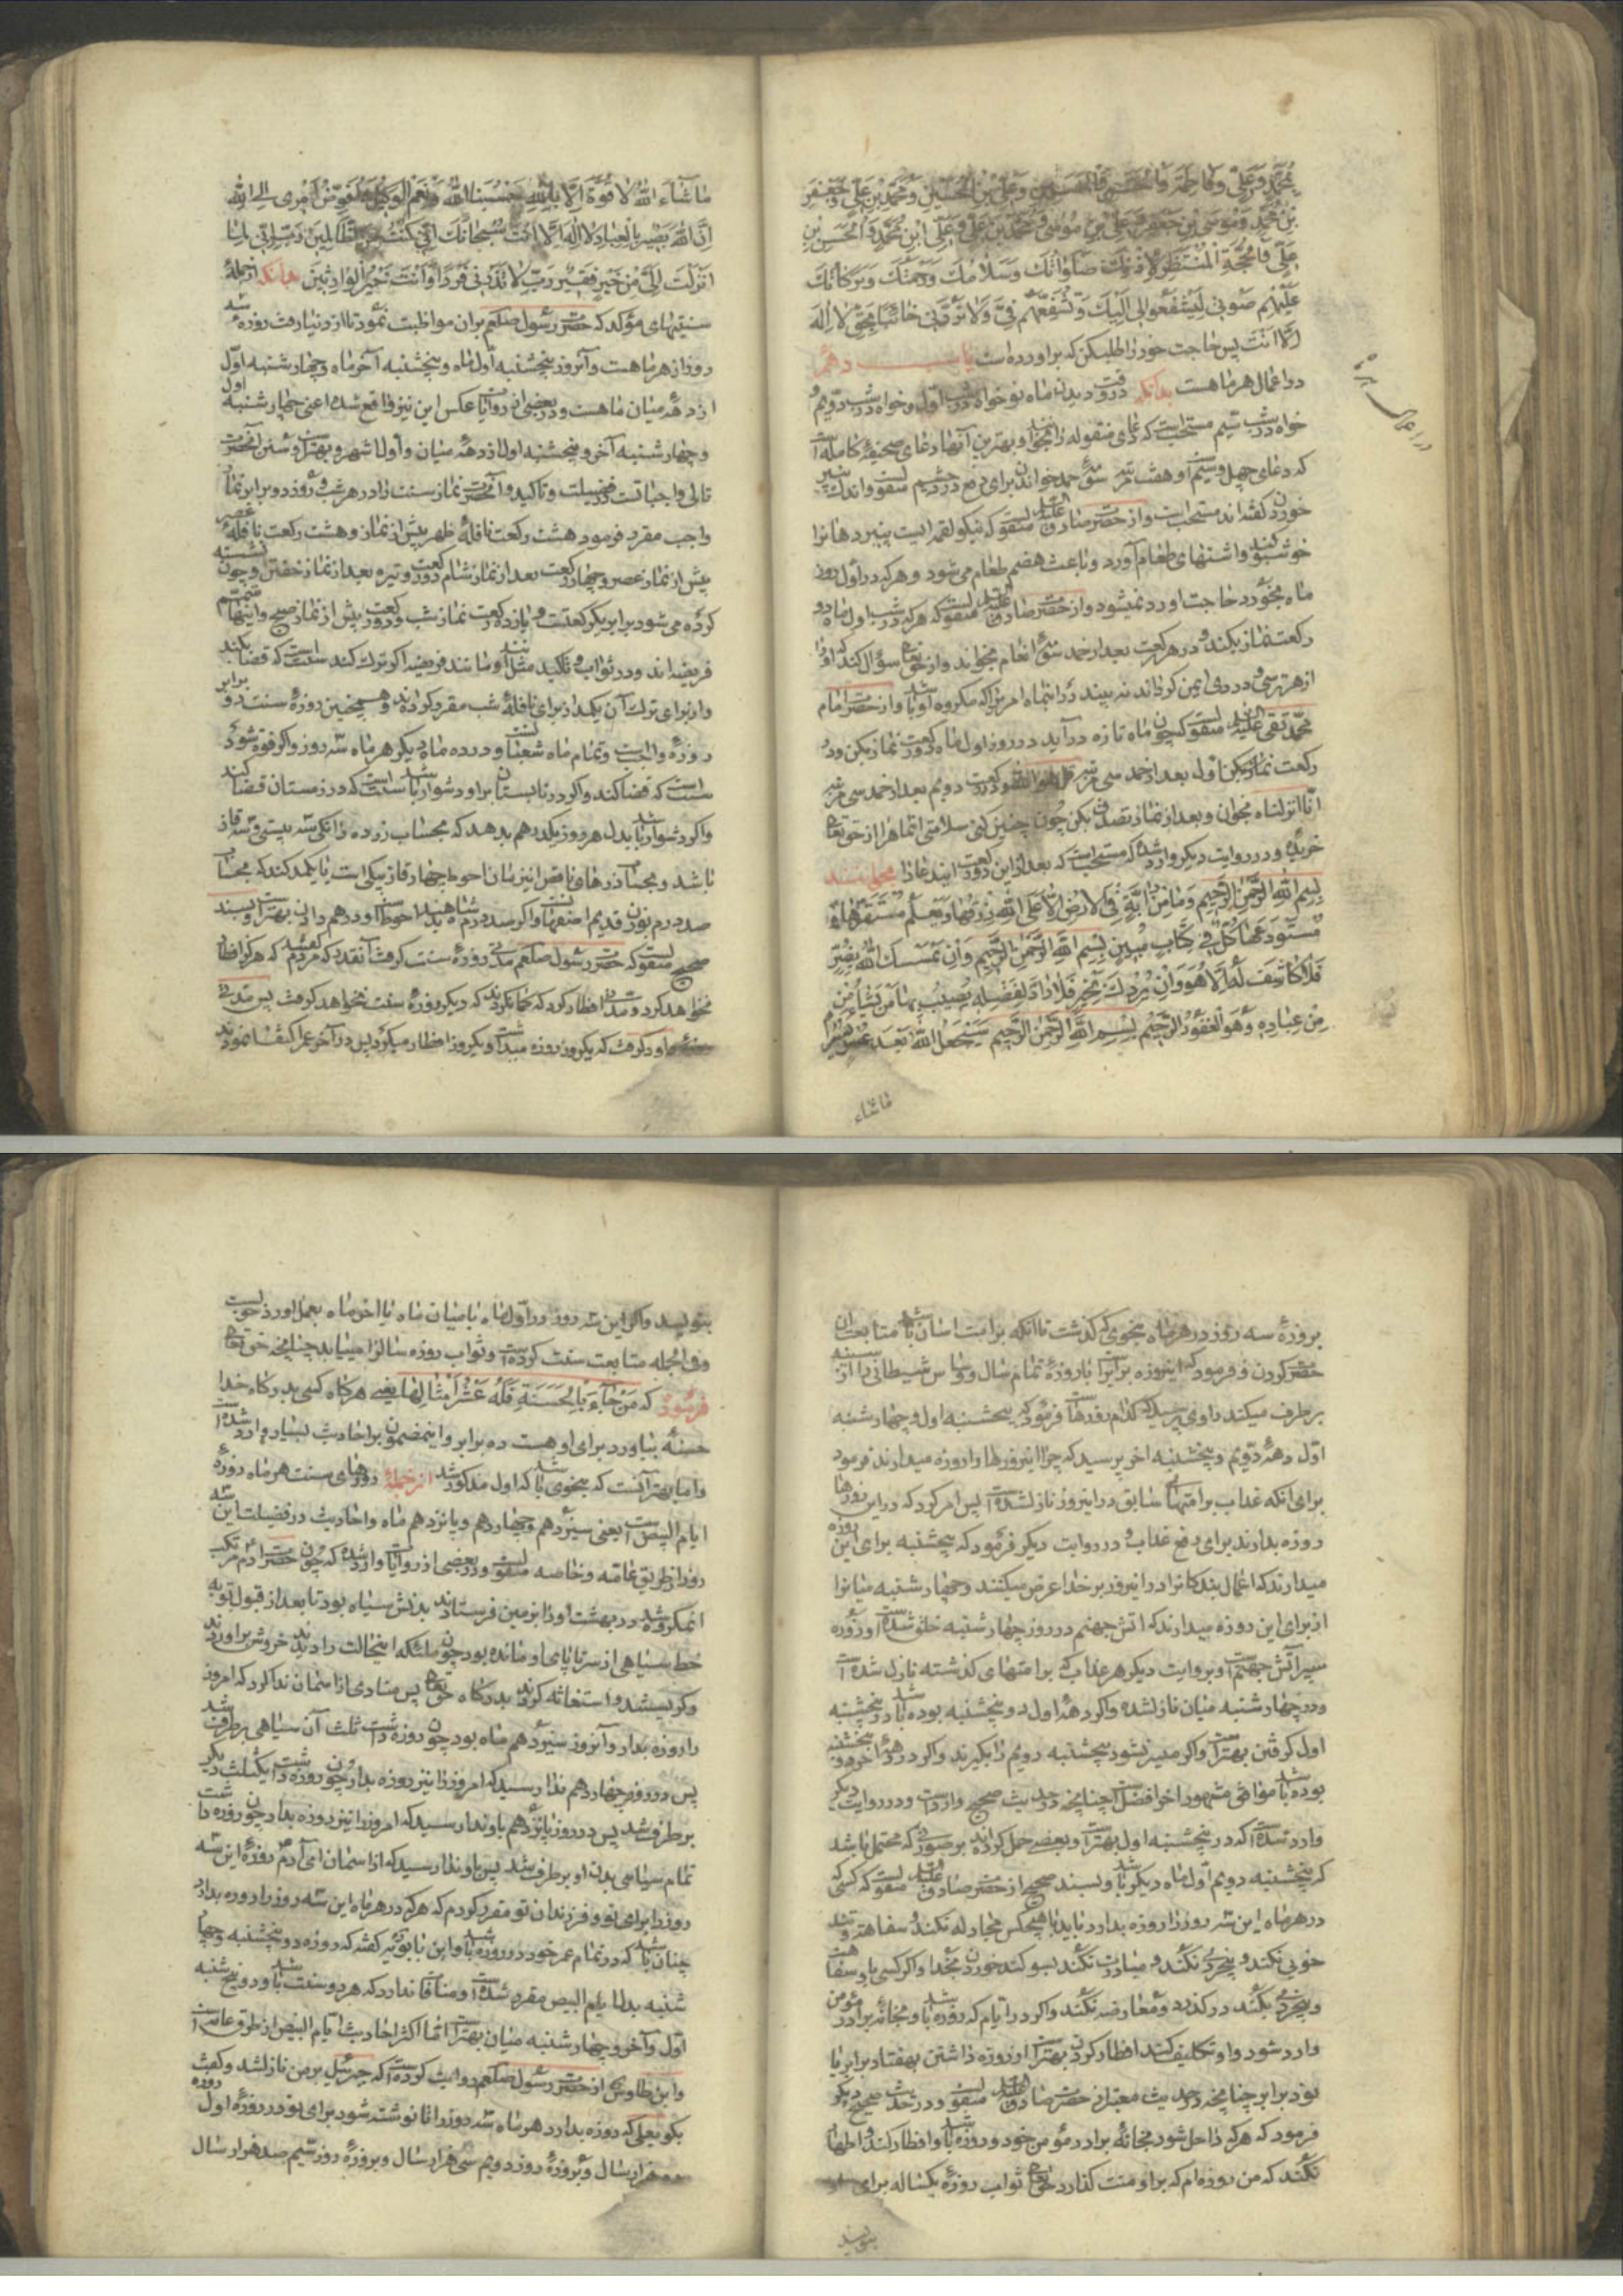 محمد و علی و فاطمة والحسن والحسین و علی بن الحسین و محمد بن علی و جعفر
بن محمد و موسی بن جعفر و علی بن موسی و محمد بن علی و علی ابن محمد والحسن بن
علی والحجة المنتظر لاذنک صلواتک و سلامک و رحمتک و برکاتک
علیهم صوتی لیشفعوا لی الیک و تشفعهم فی ولا تردنی خائبا بحق لا اله
الا انت پس حاجت خود را طلب کن که براورده است باب دهم
در اعمال هر ماهست بدانکه در وقت دیدن ماه نو خواه در شب اول و خواه در شب دویم و
خواه در شب سیم مستحبست که دعای منقوله را بخواند و بهترین آنها دعای صحیفه کامله است
که دعای چهل و سیم است و هفت مرتبه سوره حمد خواندن برای دفع درد چشم منقولست و اندک پنیر
خوردن گفته‌اند مستحب است و از حضرت صادق علیه السلام منقولست که نیکو لقمه ایست پنیر دهانرا
خوشبو کند و اشتهای طعام آورد و باعث هضم طعام می شود و هر که در اول روز
ماه بخورد حاجت او رد نمیشود و از حضرت صادق علیه السلام منقولست که هر که در شب اول ماه دو
رکعت نماز بکند و در هر رکعت بعد از حمد سوره انعام بخواند و از حق تعالی سؤال کند که او را
از هر ترسی و دردی ایمن گرداند نه بیند در انماه امریرا که مکروه او باشد و از حضرت امام
محمد تقی علیه السلام منقولست که چون ماه تازه درآید در روز اول ماه دو رکعت نماز بکن و در
رکعت اول بعد از حمد سی مرتبه قل هو الله و در رکعت دویم بعد از حمد سی مرتبه
انا انزلناه بخوان و بعد از نماز تصدق بکن چون چنین کنی سلامتی انماه را از حق تعالی
خریده و در روایت دیگر وارد شده که مستحب است که بعد از این دو رکعت ایندعا را بخوانند
بسم الله الرحمن الرحیم وما من دابة فی الارض الا علی الله رزقها ویعلم مستقرها و
مستودعها کل فی کتاب مبین بسم الله الرحمن الرحیم وان یمسسک الله بضر
فلا کاشف له الا هو وان یردک بخیر فلا راد لفضله یصیب بها من یشاء من
من عباده وهو الغفور الرحیم بسم الله الرحمن الرحیم سیجعل الله بعد عسر یسرا
ماشاء
در اعمال هر ماه
ماشاء الله لا قوة الا بالله حسبنا الله ونعم الوکیل وافوض امری الی الله
ان الله بصیر بالعباد لا اله الا انت سبحانک انی کنت من الظالمین رب انی لما
انزلت الی من خیر فقیر رب لا تذرنی فردا وانت خیر الوارثین بدانکه از جمله
سنتهای مؤکد که حضرت رسول صلعم بران مواظبت نمود تا از دنیا رفت روزه سه
روز از هر ماهست و آنروز پنجشنبه اول ماه و پنجشنبه آخر ماه و چهار شنبه اول
از دهه میان ماهست و در بعضی از روایات عکس این نیز واقع شده اعنی چهار شنبه اول
و چهار شنبه آخر و پنجشنبه اول از دهه میان و اول اشهر و بهتر است و سنن انحضرت
تالی واجباتست در فضیلت و تاکید و انحضرت نماز سنت را در هر شب و روز دو برابر نماز
واجب مقرر فرمود هشت رکعت نافله ظهر پیش از نماز و هشت رکعت نافله عصر
پیش از نماز عصر و چهار رکعت بعد از نماز شام و دو رکعت وتیره بعد از نماز خفتن نشسته و چون
کرده می شود برابر یک رکعتست و یازده رکعت نماز شب و دو رکعت پیش از نماز صبح و اینها متمم
فریضه‌اند و در ثواب و تاکید مثل او مانند فریضه اگر ترک کند سنت است که قضا بکند
و از برای ترک آن یکمد از برای نافله شب مقرر کرده‌اند و همچنین روزه سنت دو برابر
روزه واجبست و تمام ماه شعبان سنت و در ده ماه دیگر هر ماه سه روز و اگر فوت شود
سنت است که قضا کند و اگر در تابستان بر او دشوار باشد سنت است که در زمستان قضا کند
و اگر دشوار باشد بدل هر روز یکدرهم بدهد که بحساب زر ده دانکی سه بیستی و سه قاز
باشد
صد درم بوزن قدیم
صحیح منقولست که حضرت رسول صلعم مدتی روزه سنت گرفت آنقدر که مردم گفتند که هرگز افطار
نخواهد کرد و مدتی افطار کرد که گمان کردند که دیگر روزه سنت نخواهد گرفت پس مدتی
داود گرفت که یکروز روزه میداشت و یکروز افطار میکرد پس در آخر عمر اکتفا نمودند
بروزه سه روز در هر ماه بنحوی که گذشت تا آنکه بر امت اسان باشد متابعت ان
حضرت کردن و فرمود که اینروزه برابر است با روزه تمام سال و وسواس شیطانی را از سینه
برطرف میکند راوی پرسید که کدام روزها فرمود که پنجشنبه اول و چهار شنبه
اول دهه دویم و پنجشنبه اخر پرسید که چرا اینروزها را روزه میدارند فرمود
برای آنکه عذاب بر امتهای سابق در اینروز نازلشده است پس امر کرد که در این روزها
روزه بدارند برای دفع عذاب و در روایت دیگر فرمود که پنجشنبه برای این روزه
میدارند که اعمال بندگانرا در اینروز بر خدا عرض میکنند و چهار شنبه میانرا
از برای این روزه میدارند که اتش جهنم در روز چهار شنبه خلق شده است و روزه
سپر آتش جهنم است و بروایت دیگر هر عذاب که بر امتهای گذشته نازل شده است
در چهار شنبه میان نازلشده و اگر دهه اول دو پنجشنبه بوده باشد در پنجشنبه
اول گرفتن بهتر است و اگر میسر نشود پنجشنبه دویم را بگیرند و اگر در دهه آخر دو پنجشنبه
بوده باشد موافق مشهور اخر افضل است چنانچه در حدیث صحیح وارد است و در روایت دیگر
وارد شده است که در پنجشنبه اول بهتر است و بعضی حمل کرده‌اند بر صورتی که محتمل باشد
که پنجشنبه دویم اول ماه دیگر باشد و بسند صحیح از حضرت صادق علیه السلام منقولست که کسی که
در هر ماه این سه روز را روزه بدارد باید با هیچکس مجادله نکند و سفاهت و تند
خویی نکند و بیخردی نکند و مبادرت نکند بسوگند خوردن بخدا و اگر کسی با او سفاهت
و بیخردی بکند درگذرد و معارضه نکند و اگر در ایام که روزه باشد و بخانه برادر مؤمن
وارد شود و او تکلیف کند افطار کردن بهتر است از روزه داشتن بهفتاد برابر یا
نود برابر چنانچه در حدیث معتبر از حضرت صادق علیه السلام منقولست و در حدیث صحیح دیگر
فرمود که هر که داخل شود بخانه برادر مؤمن خود و روزه باشد و افطار کند و اظهار
نکند که من روزه‌ام که بر او منت گذارد حق تعالی ثواب روزه یکساله برای او
بنویسد
بنویسد و اگر این سه روز در اول ماه یا میان ماه یا اخر ماه بعمل اورد خوبست
و فی الجمله متابعت سنت کرده است و ثواب روزه سالرا مییابد چنانچه حق تعالی
فرموده که من جاء بالحسنة فله عشر امثالها یعنی هر گاه کسی بدرگاه خدا
حسنه بیاورد برای او هست ده برابر و اینمضمون بر احادیث بسیار وارد شده است
و اما بهتر آنست که بنحوی باشد که اول مذکور شد از جمله روزهای سنت هر ماه روزه
ایام البیض است یعنی سیزدهم و چهاردهم و پانزدهم ماه و احادیث در فضیلت این سه
روز از طریق عامه و خاصه منقولست و در بعضی از روایات وارد شده که چون حضرت ادم مرتکب
انمکروه شد در بهشت او را بزمین فرستادند بدنش سیاه بود تا بعد از قبول توبه
خط سیاهی از سر تا پای او مانده بود چون ملائکه اینحالت را دیدند خروش براوردند
و گریستند و استغاثه کردند بدرگاه حق تعالی پس منادی از اسمان ندا کرد که امروز
را روزه بدار و آنروز سیزدهم ماه بود چون روزه داشت ثلث آن سیاهی برطرف شد
پس در روز چهاردهم ندا رسید که امروز را نیز روزه بدار چون روزه داشت یکثلث دیگر
برطرف شد پس در روز پانزدهم باو ندا رسید که امروز را نیز روزه بدار چون روزه داشت
تمام سیاهی بدن او برطرف شد پس باو ندا رسید که از اسمان ای آدم روزه این سه
روز را برای تو و فرزندان تو مقرر کردم که هر که در هر ماه این سه روز را روزه بدارد
چنان باشد که در تمام عمر خود در روزه باشد و ابن بابویه گفته که روزه دو پنجشنبه و چهار
شنبه بدل ایام البیض مقرر شده است و منافات ندارد که هر دو سنت باشد و دو پنجشنبه
اول و آخر و چهار شنبه میان بهتر است اما اکثر احادیث ایام البیض از طرق عامه است
و ابن طاوس از حضرت رسول صلعم روایت کرده است که جبرئیل بر من نازلشد و گفت
بگو بعلی که روزه بدارد هر ماه سه روز را تا نوشته شود برای تو در روزه اول روزه
ده هزار سال و بروزه روز دویم سی هزار سال و بروزه روز سیم صد هزار سال